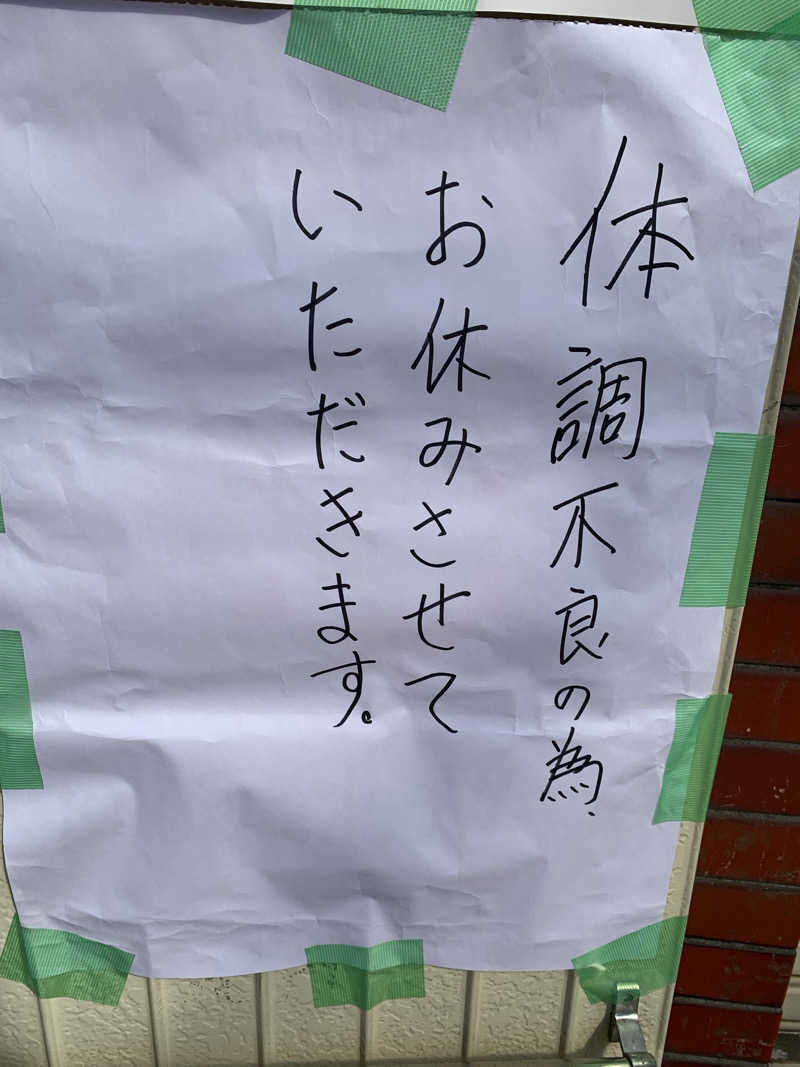 体調不良の為、
お休みさせて
いただきます。